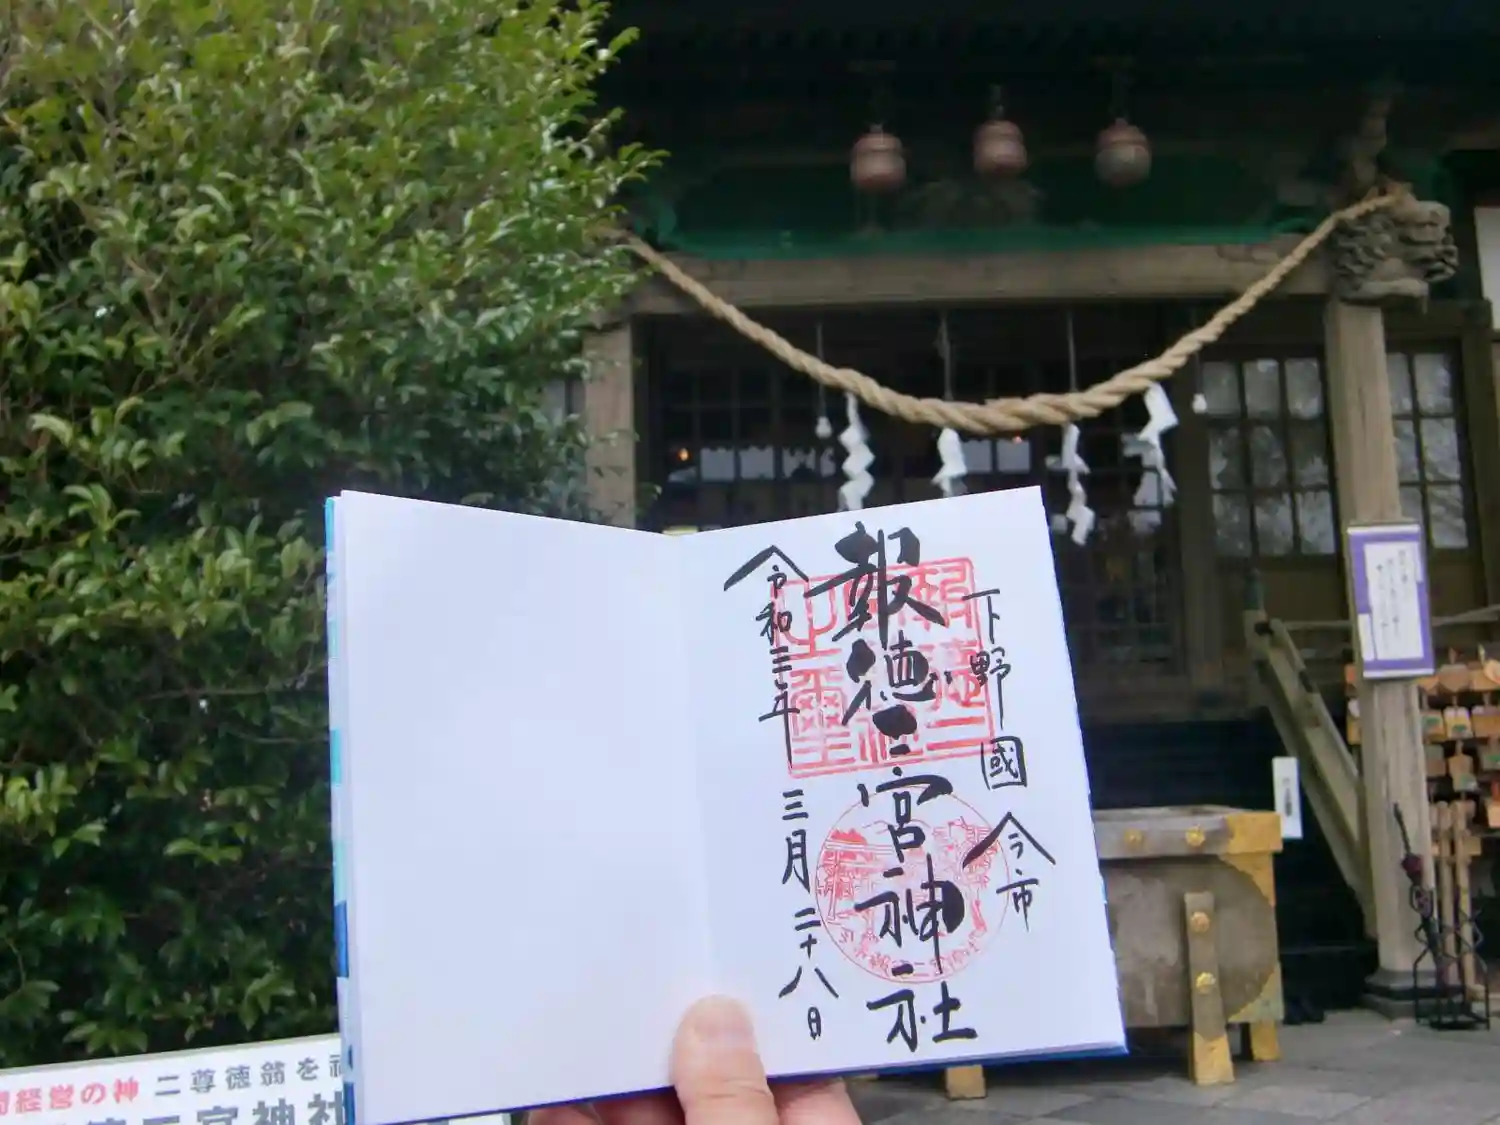 下野國 今市
報徳二宮神社
令和三年 三月 二十八日
経営の神 二尊徳翁を
二宮神社